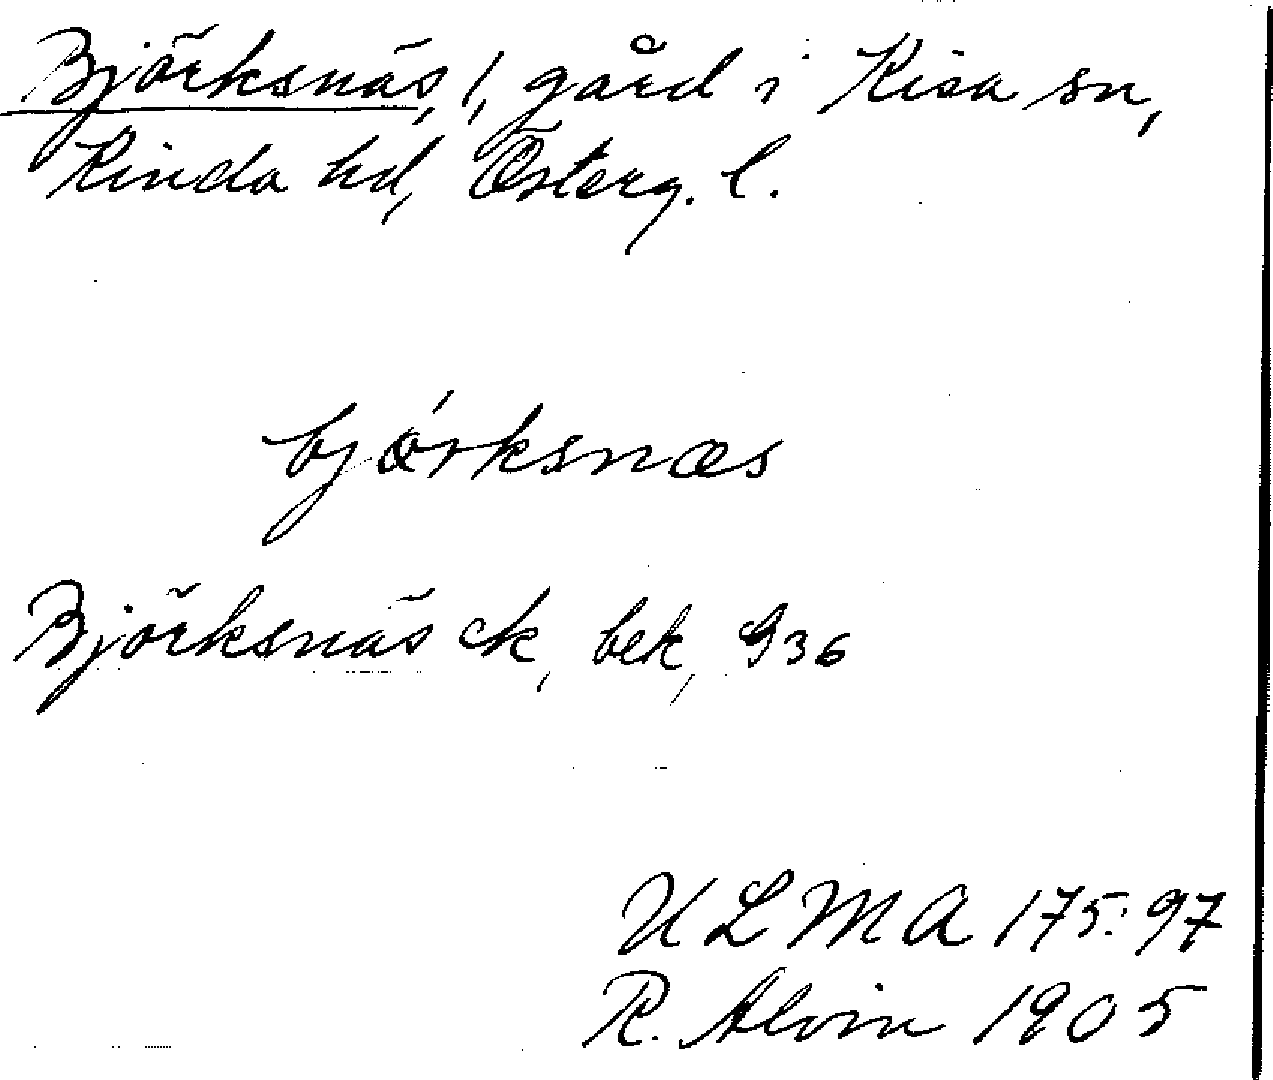 Björksnäs, 1, gård i Kisa sn,
Kinda hd, Österg. l.
bjǿrksnæs
Björksnäs ck, bek, 936
ULMA 175:97
R. Alvin 1905